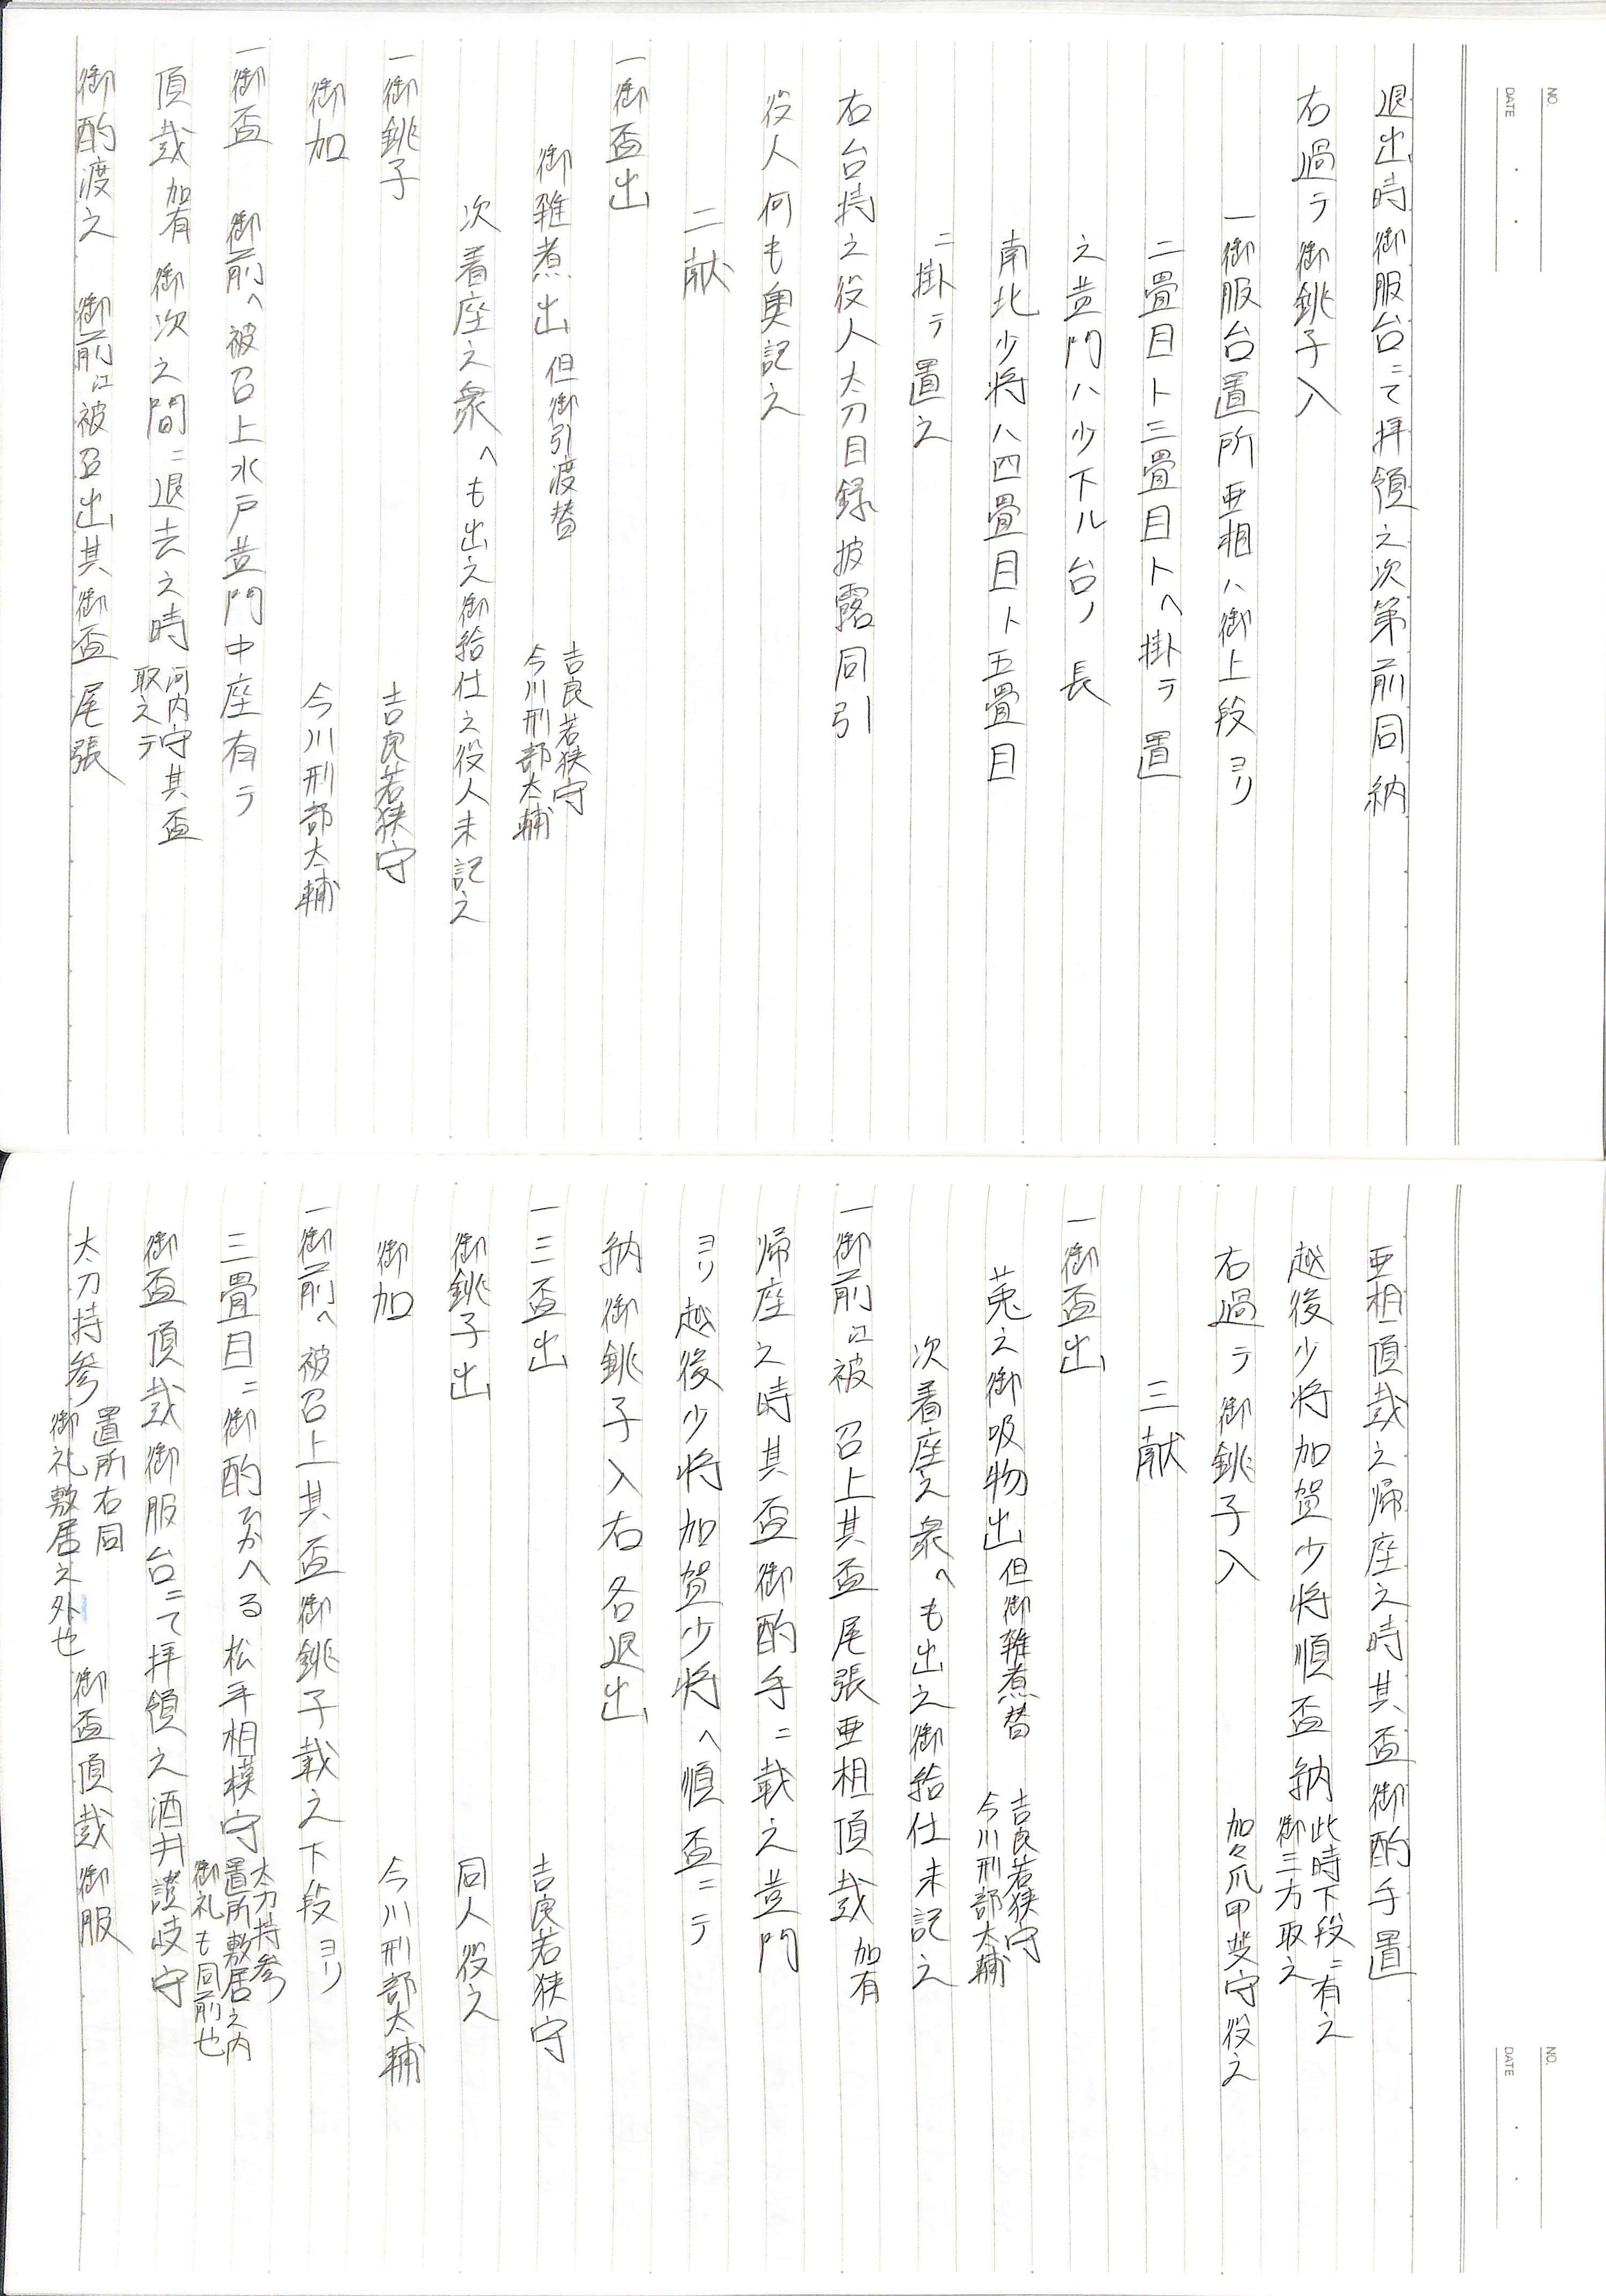 NO.
DATE
退出時御服台ニて拝領之次第前同納
右過テ御銚子入
一御服台置所亜相ハ御上段ヨリ
二畳目ト三畳目トヘ掛テ置
之黄門ハ少下ル台ノ長
南北少将ハ四畳目ト五畳目
ニ掛テ置之
右台持之役人太刀目録披露同引
役人何も奥記之
二献
一御盃出
御雑煮出 但御引渡替 吉良若狭守
今川刑部太輔
次着座之衆へも出之御給仕之役人未記之
一御銚子 吉良若狭守
御加 今川刑部太輔
一御盃 御前へ被召上水戸黄門中座有テ
頂戴 加有 御次之間ニ退去之時 河内守其盃
取之テ
御酌渡之 御前江被召出其御盃尾張
NO.
DATE
亜相頂戴之帰座之時其盃御酌手置
越後少将加賀少将順盃納 此時下段ニ有之
御三方取之
右過テ御銚子入 加々爪甲斐守役之
三献
一御盃出
菟之御吸物出 但御雑煮替 吉良若狭守
今川刑部太輔
次着座之衆へも出之御給仕未記之
一御前江被召上其盃尾張亜相頂戴 加有
帰座之時其盃御酌手ニ載之黄門
ヨリ越後少将加賀少将へ順盃ニテ
納御銚子入右各退出
一三盃出 吉良若狭守
御銚子出 同人役之
御加 今川刑部太輔
一御前へ被召上其盃御銚子載之下段ヨリ
三畳目ニ御酌ひかへる松平相模守 太刀持参
置所敷居之内
御礼も同前也
御盃頂戴御服台ニて拝領之酒井讃岐守
太刀持参 置所右同
御礼敷居之外也 御盃頂戴御服